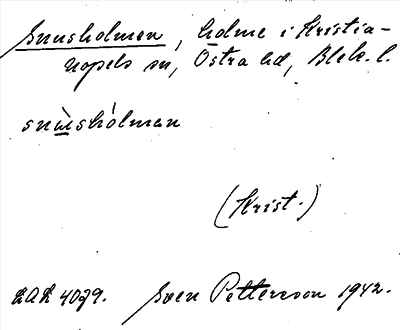 Snusholmen, holme i Kristia-
nopels sn, Östra hd, Blek. l.
snùshólman
(Krist.)
LAL 4079.
Sven Pettersson 1942.